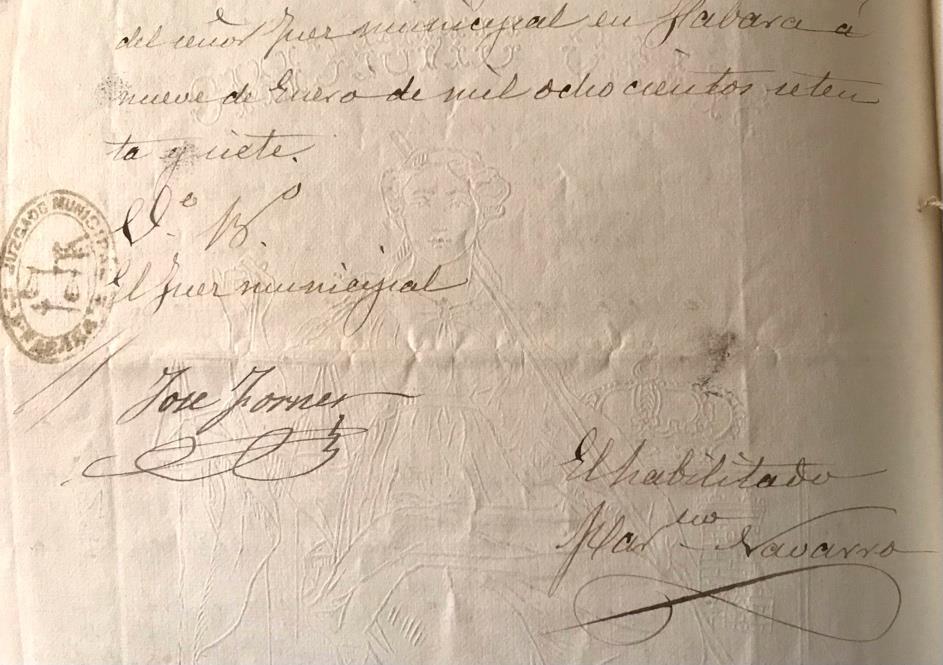 del señor Juez municipal en Nabara á
nueve de Enero de mil ochocientos seten
ta y siete.
V.º B.º
El Juez municipal
JUZGADO MUNICIPAL
Jose Forner
El habilitado
Marno Navarro